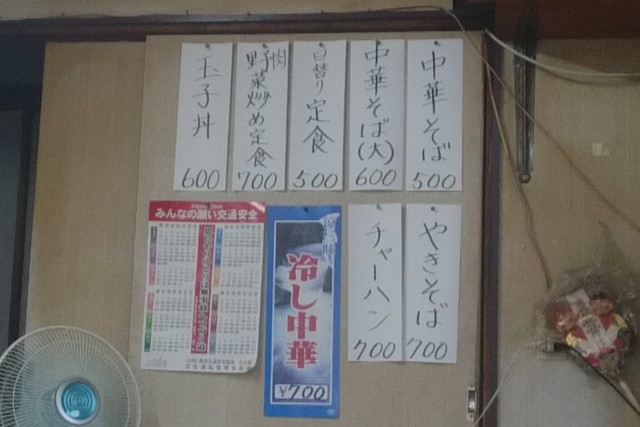 中華そば
500
中華そば(大)
600
日替り定食
500
肉野菜炒め定食
700
玉子丼
600
やきそば
700
チャーハン
700
冷し中華
¥700
みんなの願い交通安全